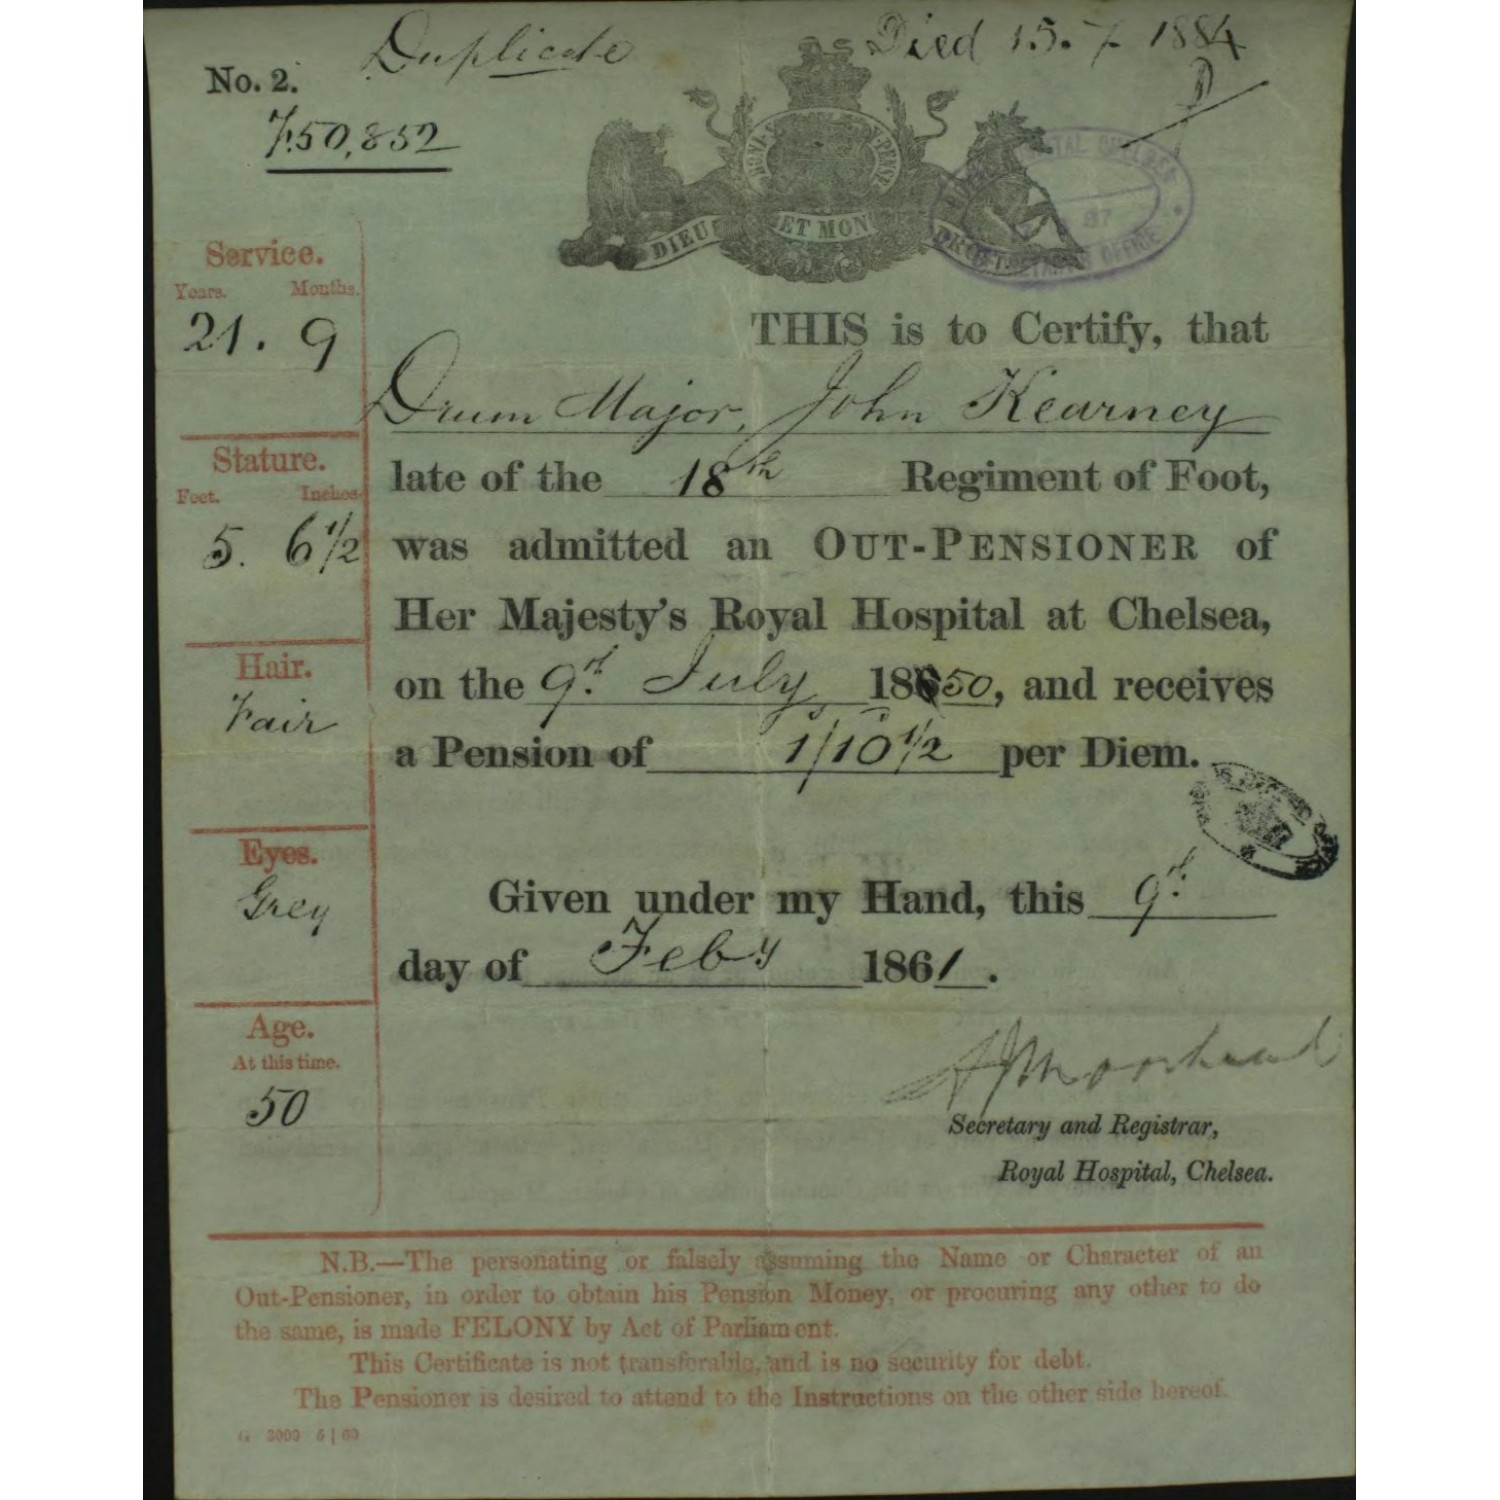 Duplicate
Died 15.7.1884
No. 2.
D
50,852
HONI S PENSE
DIEU ET MON DROIT
Service.
Years. Months.
21. 9
THIS is to Certify, that
Drum Major, John Kearney
Stature.
Feet. Inches.
5. 6 1/2
late of the 18th Regiment of Foot,
was admitted an OUT-PENSIONER of
Her Majesty's Royal Hospital at Chelsea,
Hair.
Fair
on the 9th July 1850, and receives
a Pension of 1/10 1/2 per Diem.
Eyes.
Grey
Given under my Hand, this 9th
day of Feby 1861.
Age.
At this time.
50
Secretary and Registrar,
Royal Hospital, Chelsea.
N.B.—The personating or falsely assuming the Name or Character of an
Out-Pensioner, in order to obtain his Pension Money, or procuring any other to do
the same, is made FELONY by Act of Parliament.
This Certificate is not transferable, and is no security for debt.
The Pensioner is desired to attend to the Instructions on the other side hereof.